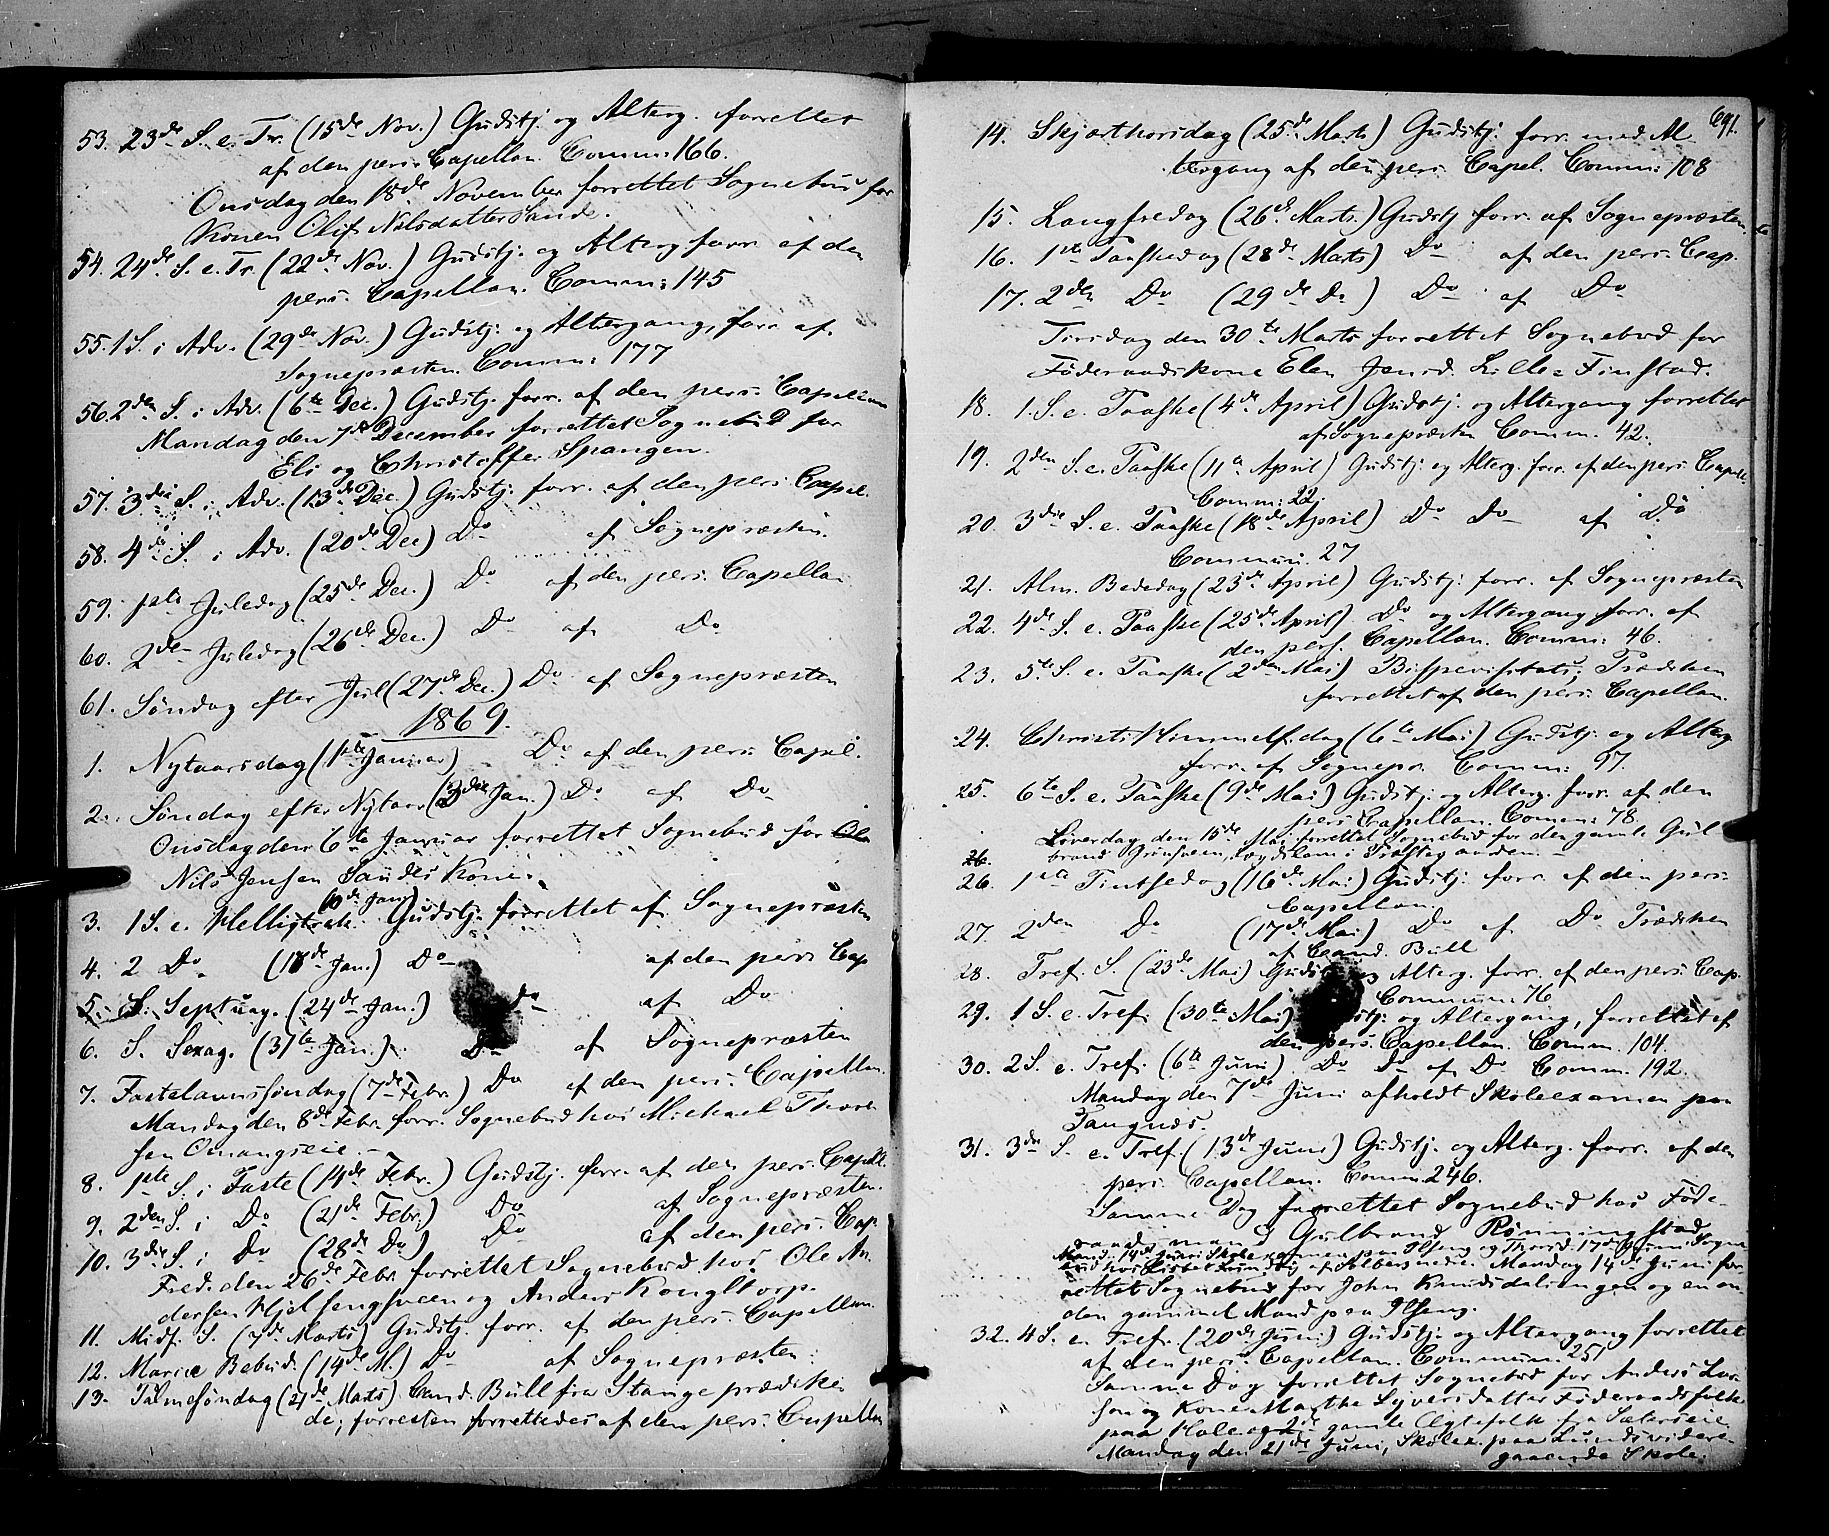 53. 23de S. e. Tr. (15de Nov.) Gudstj. og Alterg. forrettet
af den pers. Capellan. Comm: 166.
Onsdag den 18de November forrettet Sognebud for
Konen Oluf Nilsdatter Sande.
54. 24de S. e. Tr. (22de Nov.) Gudstj. og Alterg. forr. af den
pers. Capellan. Comm: 145
55. 1 S. i Adv. (29de Nov.) Gudstj. og Altergang, forr. af
Sognepræsten. Comm: 177
56. 2den S. i Adv. (6te Dec.) Gudstj. forr. af den pers. Capellan
Mandag den 7de December forrettet Sognebud for
Eli og Christoffer Spangen.
57. 3die S. i Adv. (13de Dec.) Gudstj. forr. af den pers. Capel.
58. 4de S. i Adv. (20de Dec) Do af Sognepræsten.
59. 1ste Juledag (25de Dec.) Do af den pers. Capellan
60. 2den Juledag (26de Dec.) Do af Do
61. Søndag efter Jul (27de Dec.) Do af Sognepræsten
1869.
1. Nytaarsdag (1ste Januar) Do af den pers. Capel.
2. Søndag efter Nytaar (3die Jan.) Do af Do
Onsdag den 6te Januar forrettet Sognebud for Ole
Nils Jensen Sandes Kone.
10de Jan.
3. 1 S. e. Helligtrek. Gudstj. forrettet af Sognepræsten
4. 2 Do (17de Jan.) Do af den pers Cap
5. S. Septuag. (24de Jan.) Do af Do
6. S. Sexag. (31te Jan.) Do af Sognepræsten
7. Fastelavnssøndag (7de Febr.) Do af den pers. Capellan.
Mandag den 8de Febr. forr. Sognebud hos Michael Thor
sen Omangseie.
8. 1ste S. i Faste (14de Febr.) Gudstj. forr. af den pers. Capell.
9. 2den S. i Do (21de Febr.) Do af Sognepræsten.
10. 3die S. i Do (28de Do) Do af den pers. Cap.
Fred. den 26de Febr forrettet Sognebud hos Ole An
dersen Hjelsengsveen og Anders Kongltorp.
11. Midf. S. (7de Marts) Gudstj. forr. af den pers. Capellan.
12. Mariæ Bebud. (14de M.) Do af Sognepræsten.
13. Palmesøndag (21de Marts) Cand. Bull fra Stange prædike
de; forresten forrettedes af den pers. Capellan
691.
14. Skjærthorsdag (25de Marts) Gudstj. forr. med Al
tergang af den pers. Capel. Comm: 108
15. Langfredag (26de Marts.) Gudstj forr. af Sognepræsten.
16. 1ste Paaskedag (28de Marts) Do af den pers. Cap.
17. 2den Do (29de Do) Do af Do
Tirsdag den 30te Marts forrettet Sognebud for
Føderaadskone Elen Jensd. Lille-Finstad.
18. 1. S. e. Paaske (4de April) Gudstj. og Altergang forrettet
af Sognepræsten Comm. 42.
19. 2den S. e. Paaske (11te April) Gudstj. og Alterg. forr. af den pers. Capell.
Comm: 22.
20. 3die S. e. Paaske (18de April) Do Do af Do
Commun. 27
21. Alm. Bededag (23de April) Gudstj. forr. af Sognepræsten
22. 4de S. e. Paaske (25de April) Do og Altergang forr. af
den pers. Capellan. Comm: 46.
23. 5te S. e. Paaske (2den Mai) Bispevisitats; Prædiken
forrettet af den pers. Capellan.
24. Christi Himmelf.dag (6te Mai) Gudstj. og Alterg
forr. af Sognepr. Comm: 97.
25. 6te S. e. Paaske (9de Mai) Gudstj. og Alterg. forr. af den
pers. Capellan. Comm: 78.
Løverdag den 15de Mai forrettet Sognebud for den gamle Gul
26. brand
26. 1ste Pintsedag (16de Mai) Gudstj. forr. af den pers.
Capellan.
27. 2den Do (17de Mai) Do af Do Prædiken
af Cand. Bull
28. Tref. S. (23de Mai) Gudstj. og Alterg. forr. af den pers. Cap.
Commun: 76
29. 1 S. e. Tref. (30te Mai) og Altergang, forrettet af
den pers. Capellan. Comm. 104
30. 2 S. e. Tref. (6te Juni) Do Do af Do Comm. 192.
Mandag den 7de Juni afholdt Skoleexamen paa
Tangnæs.
31. 3die S. e. Tref. (13de Juni) Gudstj. og Alterg. forr. af den
pers. Capellan. Comm. 246.
Samme Dag forrettet Sognebud hos Føde-
raadsmand Gulbrand Rønningstad
Mand. 14de Juni Skoleexamen paa Ilseng og Thorsd. 17de Juni Sogne
bud hos Mandag 14de Juni for-
rettet Sognebud for John Knudsdalingen og en an
den gammel Mand paa Ilseng.
32. 4 S. e. Tref. (20de Juni) Gudstj. og Altergang forrettet
af den pers. Capellan. Commun. 251
Samme Dag forrettet Sognebud for Anders Lar
sen og Kone Marthe Syversdatter Føderaadsfolk
paa Hole og 2de gamle Ægtefolk fra Sæterseie
Mandag den 21de Juni, Skoleex. paa Lunds videre-
gaaende Skole.